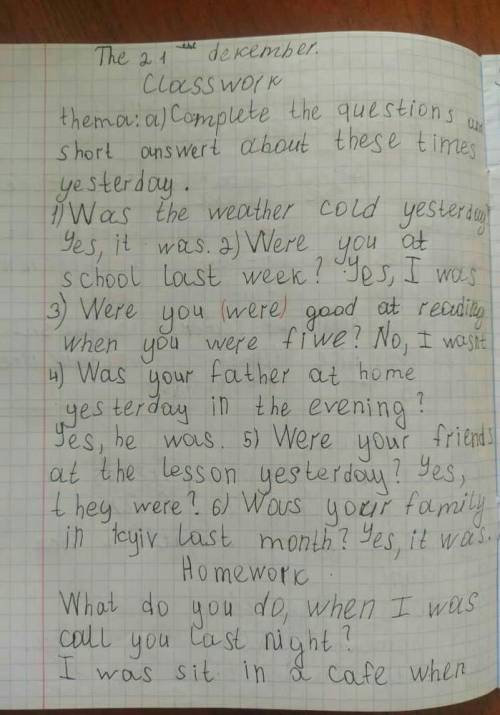 The 21 the dekember.
Classwork
thema: a) Complete the questions an
short answert about these times
yesterday.
1) Was the weather cold yesterday
Yes, it was. 2) Were you at
school last week? Yes, I was
3) Were you (were) good at reading
when you were fiwe? No, I wasnt
4) Was your father at home
yesterday in the evening?
Yes, he was. 5) Were your friends
at the lesson yesterday? Yes,
they were? 6) Was your family
in Kyiv last month? Yes, it was.
Homework.
What do you do, when I was
call you last night?
I was sit in a cafe when